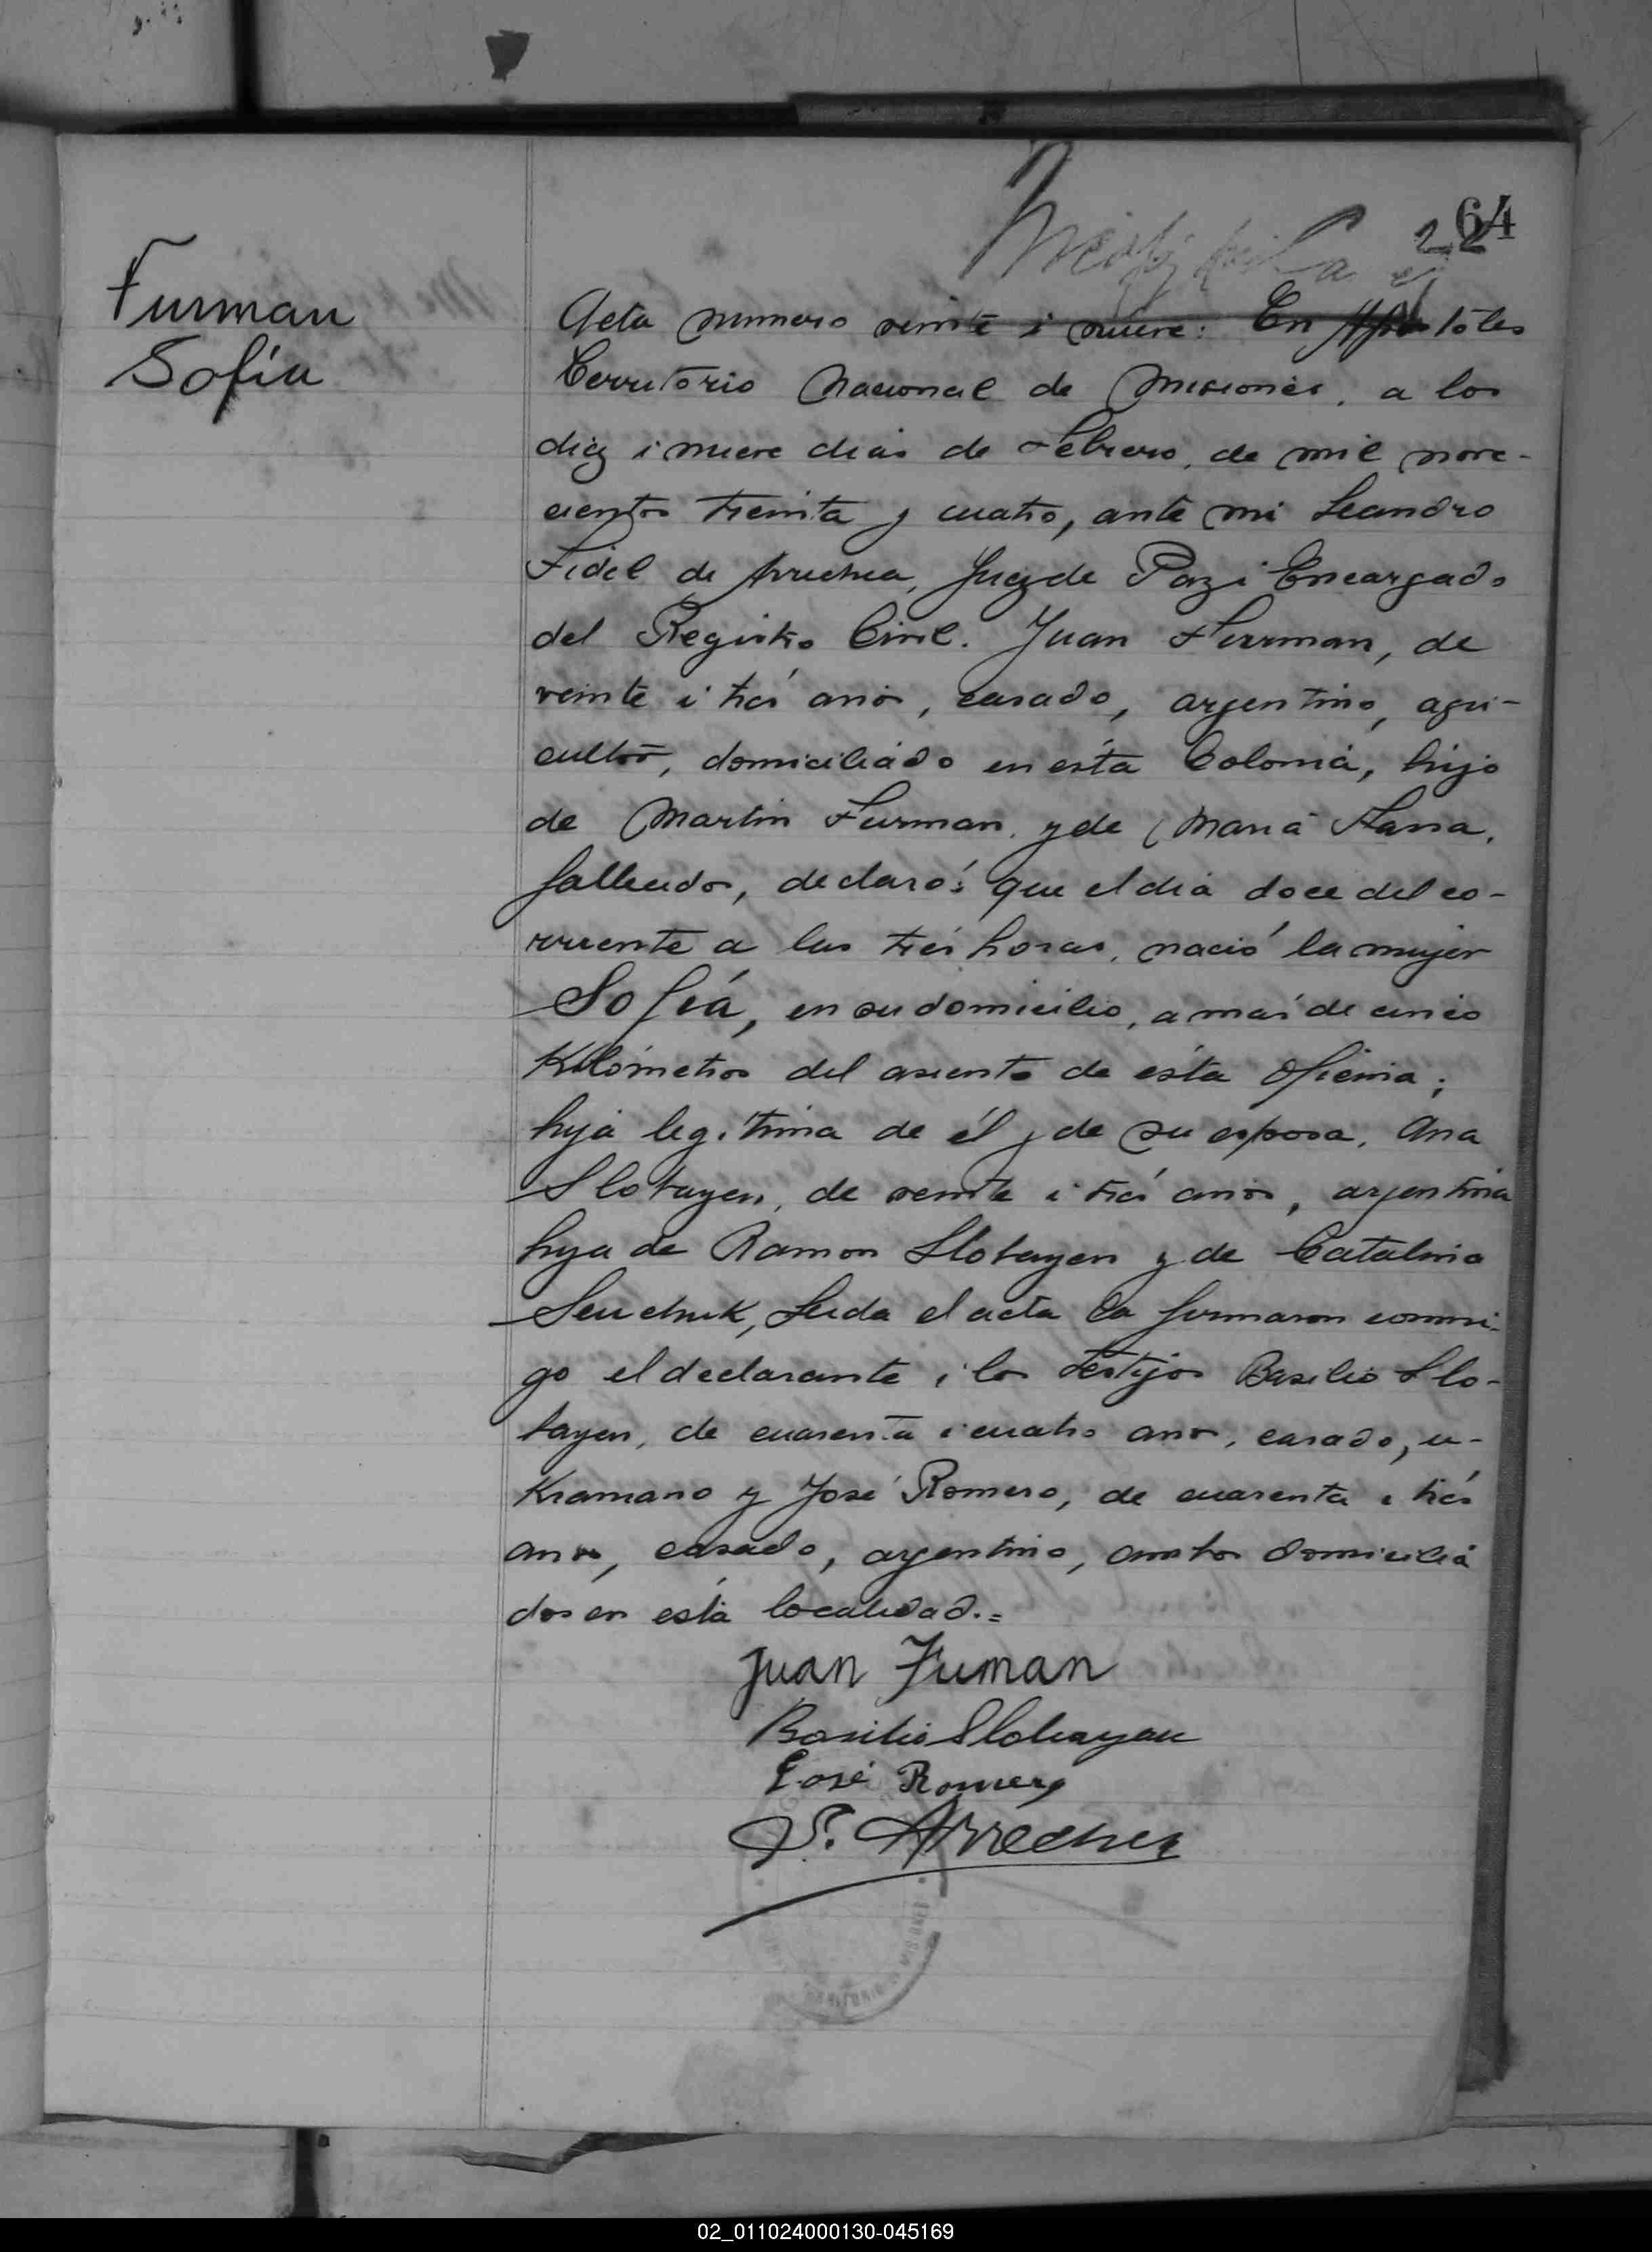 64
22
Furman
Sofía
Acta numero veinte i nueve: En Apostoles
Territorio Nacional de Misiones, a los
diez i nueve dias de Febrero, de mil nove-
cientos treinta y cuatro, ante mi Leandro
Fidel de Arrechea, Juez de Paz i Encargado
del Registro Civil. Juan Furman, de
veinte i tres años, casado, argentino, agri-
cultor, domiciliado en esta Colonia, hijo
de Martin Furman y de Maria
fallecidos, declaró: que el dia doce del co-
rriente a las tres horas, nació la mujer
Sofía, en su domicilio, a más de cinco
Kilómetros del asiento de ésta oficina;
hija legitima de él y de su esposa, Ana
Slotayen, de veinte i tres años, argentina
hija de Ramon Slotayen y de Catalina
Senchuk, Leida el acta la firmaron conmi-
go el declarante i los testigos Basilio Slo-
tayen, de cuarenta i cuatro años, casado, u-
Kraniano y José Romero, de cuarenta i tres
años, casado, argentino, ambos domicilia
dos en esta localidad.=
Juan Fuman
Basilio Slotayen
José Romero
Arrechea
02_011024000130-045169